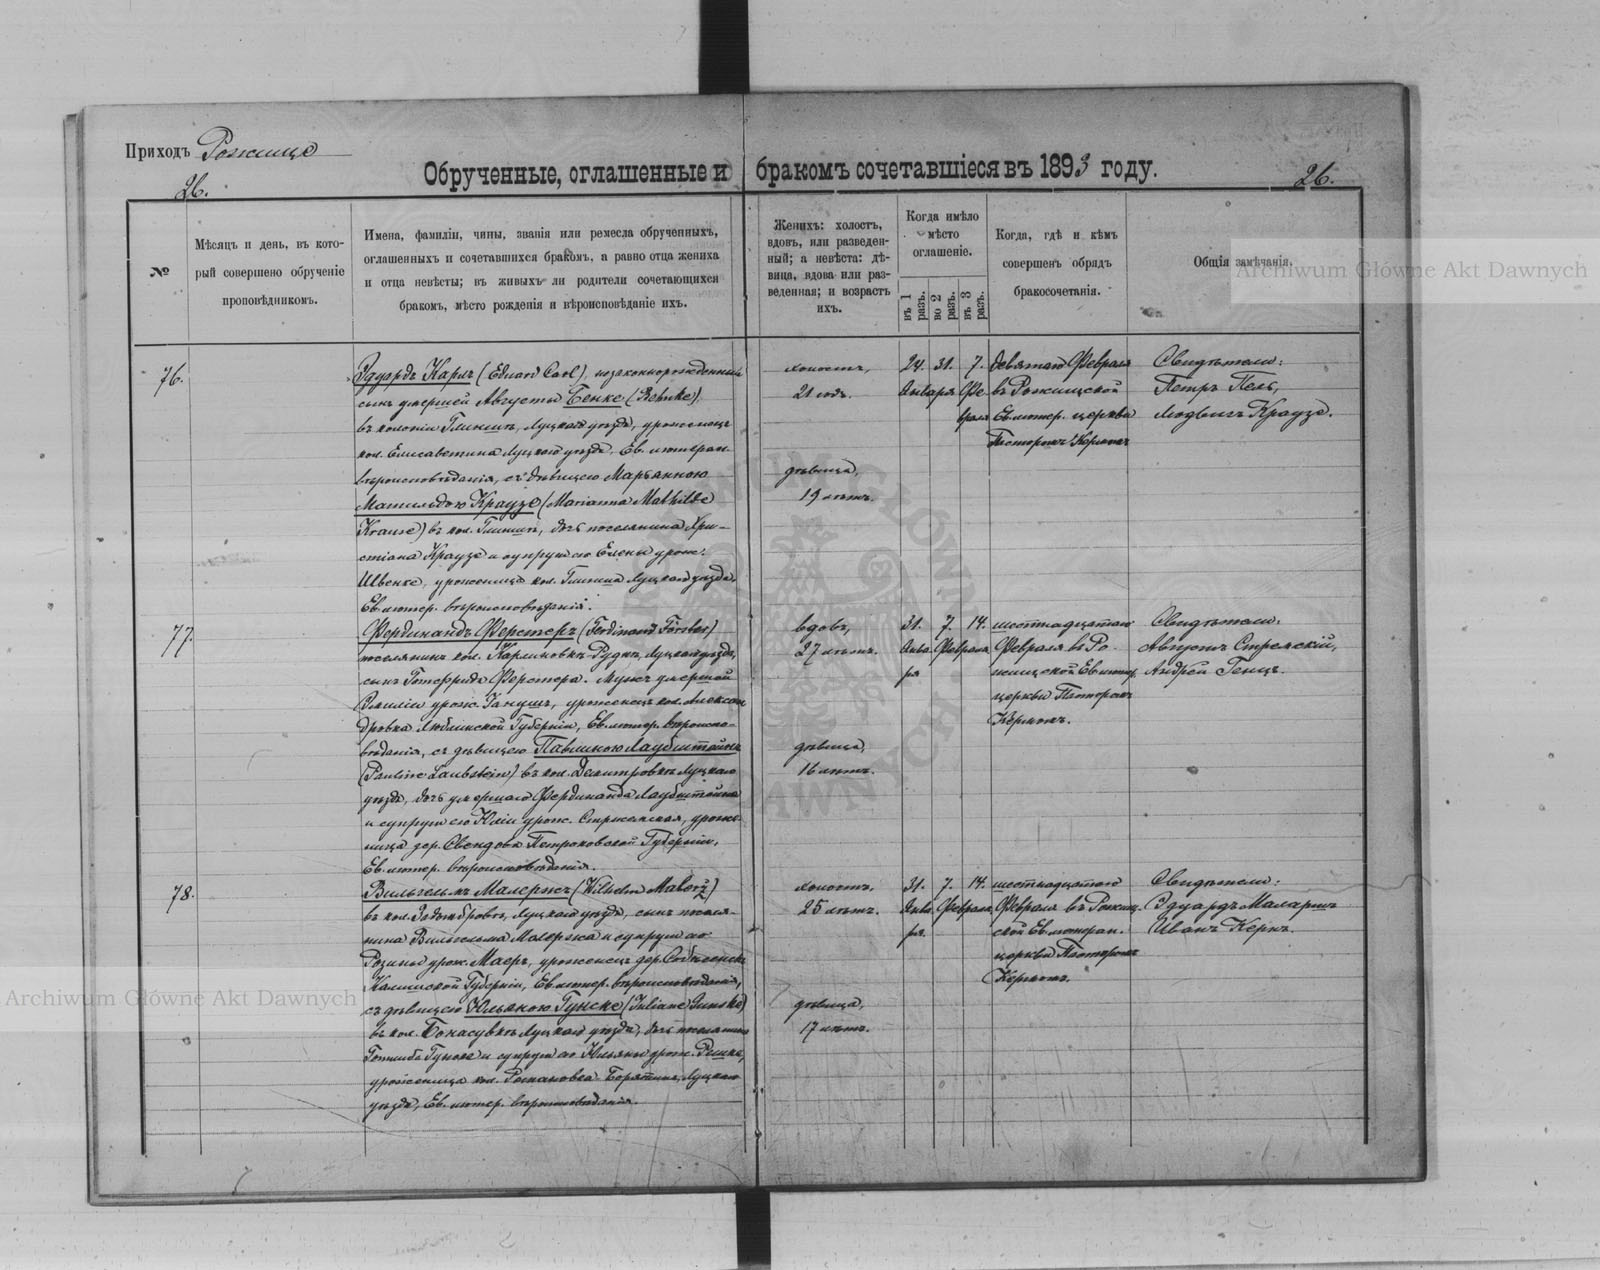 Приходъ Рожище
Обрученные, оглашенные и бракомъ сочетавшіеся въ 1893 году.
26.
26.
№
Мѣсяцъ и день, въ кото-
рый совершено обрученіе
проповѣдникомъ.
Имена, фамиліи, чины, званія или ремесла обрученныхъ,
оглашенныхъ и сочетавшихся бракомъ, а равно отца жениха
и отца невѣсты; въ живыхъ ли родители сочетающихся
бракомъ, мѣсто рожденія и вѣроисповѣданіе ихъ.
Женихъ: холостъ,
вдовъ, или разведен-
ный; а невѣста: дѣ-
вица, вдова или раз-
веденная; и возрастъ
ихъ.
Когда имѣло
мѣсто
оглашеніе.
въ 1 разъ.
во 2 разъ.
въ 3 разъ.
Когда, гдѣ и кѣмъ
совершенъ обрядъ
бракосочетанія.
Общія замѣчанія.
Archiwum Główne Akt Dawnych
76.
Эдуардъ Карлъ (Eduard Carl), незаконнорожденный
сынъ умершей Августы Бенке (Behnke),
въ колоніи Глинищъ, Луцкаго уѣзда, уроженецъ
кол. Елисаветина Луцкаго уѣзда, Ев. лютеран.
вѣроисповѣданія, съ дѣвицею Марьянною
Матильдою Краузе (Marianna Mathilde
Krause) въ кол. Глинищъ, дочь поселянина Хри-
стіана Краузе и супруги его Елены урож.
Швенке, уроженица кол. Глинища Луцкаго уѣзда,
Ев. лютер. вѣроисповѣданія.
холостъ,
21 годъ.
дѣвица,
19 лѣтъ.
24. 31. 7.
Января Фе-
враля
девятаго Февраля
въ Рожищской
Ев. лютер. церкви
Пасторомъ Кермомъ
Свидѣтели:
Петръ Пель,
Людвигъ Краузе.
77.
Фердинандъ Ферстеръ (Ferdinand Förster)
поселянинъ кол. Каролиновкѣ Рудкѣ, Луцкаго уѣзда,
сынъ Готфрида Ферстера. Мужъ умершей
Эмиліи урож. Янушъ, уроженецъ кол. Алексан-
дровка Люблинской Губерніи, Ев. лютер. вѣроиспо-
вѣданія, съ дѣвицею Павлиною Лаубштейнъ
(Pauline Laubstein) въ кол. Дмитровкѣ Луцкаго
уѣзда, дочь умершаго Фердинанда Лаубштейна
и супруги его Юліи урож. Стрижемская, уроже-
ница дер. Свендова Петроковской Губерніи,
Ев. лютер. вѣроисповѣданія.
вдовъ,
27 лѣтъ.
дѣвица,
16 лѣтъ.
31. 7. 14.
Янва- Февраля
ря
шестнадцатаго
Февраля въ Ро-
жищской Ев. лютер.
церкви Пасторомъ
Кермомъ.
Свидѣтели:
Августъ Стремскій,
Андрей Генцъ.
78.
Вильгельмъ Малержъ (Wilhelm Malerz)
въ кол. Луцкаго уѣзда, сынъ поселя-
нина Вильгельма Малержа и супруги его
Розины урож. Маеръ, уроженецъ дер.
Калишской Губерніи, Ев. лютер. вѣроисповѣданія,
съ дѣвицею Юльяною Гунске (Juliane Gunske)
въ кол. Луцкаго уѣзда, дочь поселянина
Готлиба Гунске и супруги его Юльяны урож.
уроженица кол. Романовка Борятинъ, Луцкаго
уѣзда, Ев. лютер. вѣроисповѣданія.
холостъ,
25 лѣтъ.
дѣвица,
17 лѣтъ.
31. 7. 14.
Янва- Февраля
ря
шестнадцатаго
Февраля въ Рожищ-
ской Ев. лютеран.
церкви Пасторомъ
Кермомъ.
Свидѣтели:
Эдуардъ Маларшъ
Иванъ Кернъ.
Archiwum Główne Akt Dawnych